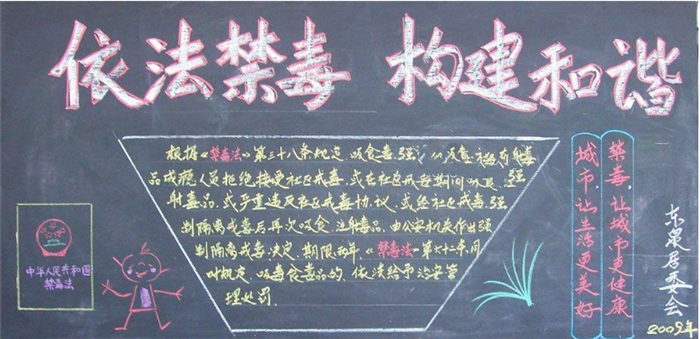 依法禁毒 构建和谐
根据《禁毒法》第三十八条规定,吸食毒
品成瘾人员拒绝接受社区戒毒,或在社区戒毒期间吸食、注
射毒品,或严重违反社区戒毒协议,或经社区戒毒、强
制隔离戒毒后再次吸食、注射毒品,由公安机关作出强
制隔离戒毒决定,期限两年,《禁毒法》第六十二条同
时规定,吸毒食毒品的,依法给予治安管
理处罚.
中华人民共和国
禁毒法
禁毒,让城市更健康
城市,让生活更美好
东泉居委会
2009年